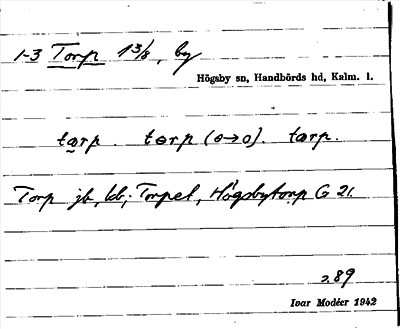 1-3 Torp 1 3/8, by
Högsby sn, Handbörds hd, Kalm. l.
tarp. tɵrp (ɵ→o). tarp.
Torp jb, kb; Torpet, Högsbytorp G 21.
s. 89
Ivar Modéer 1942